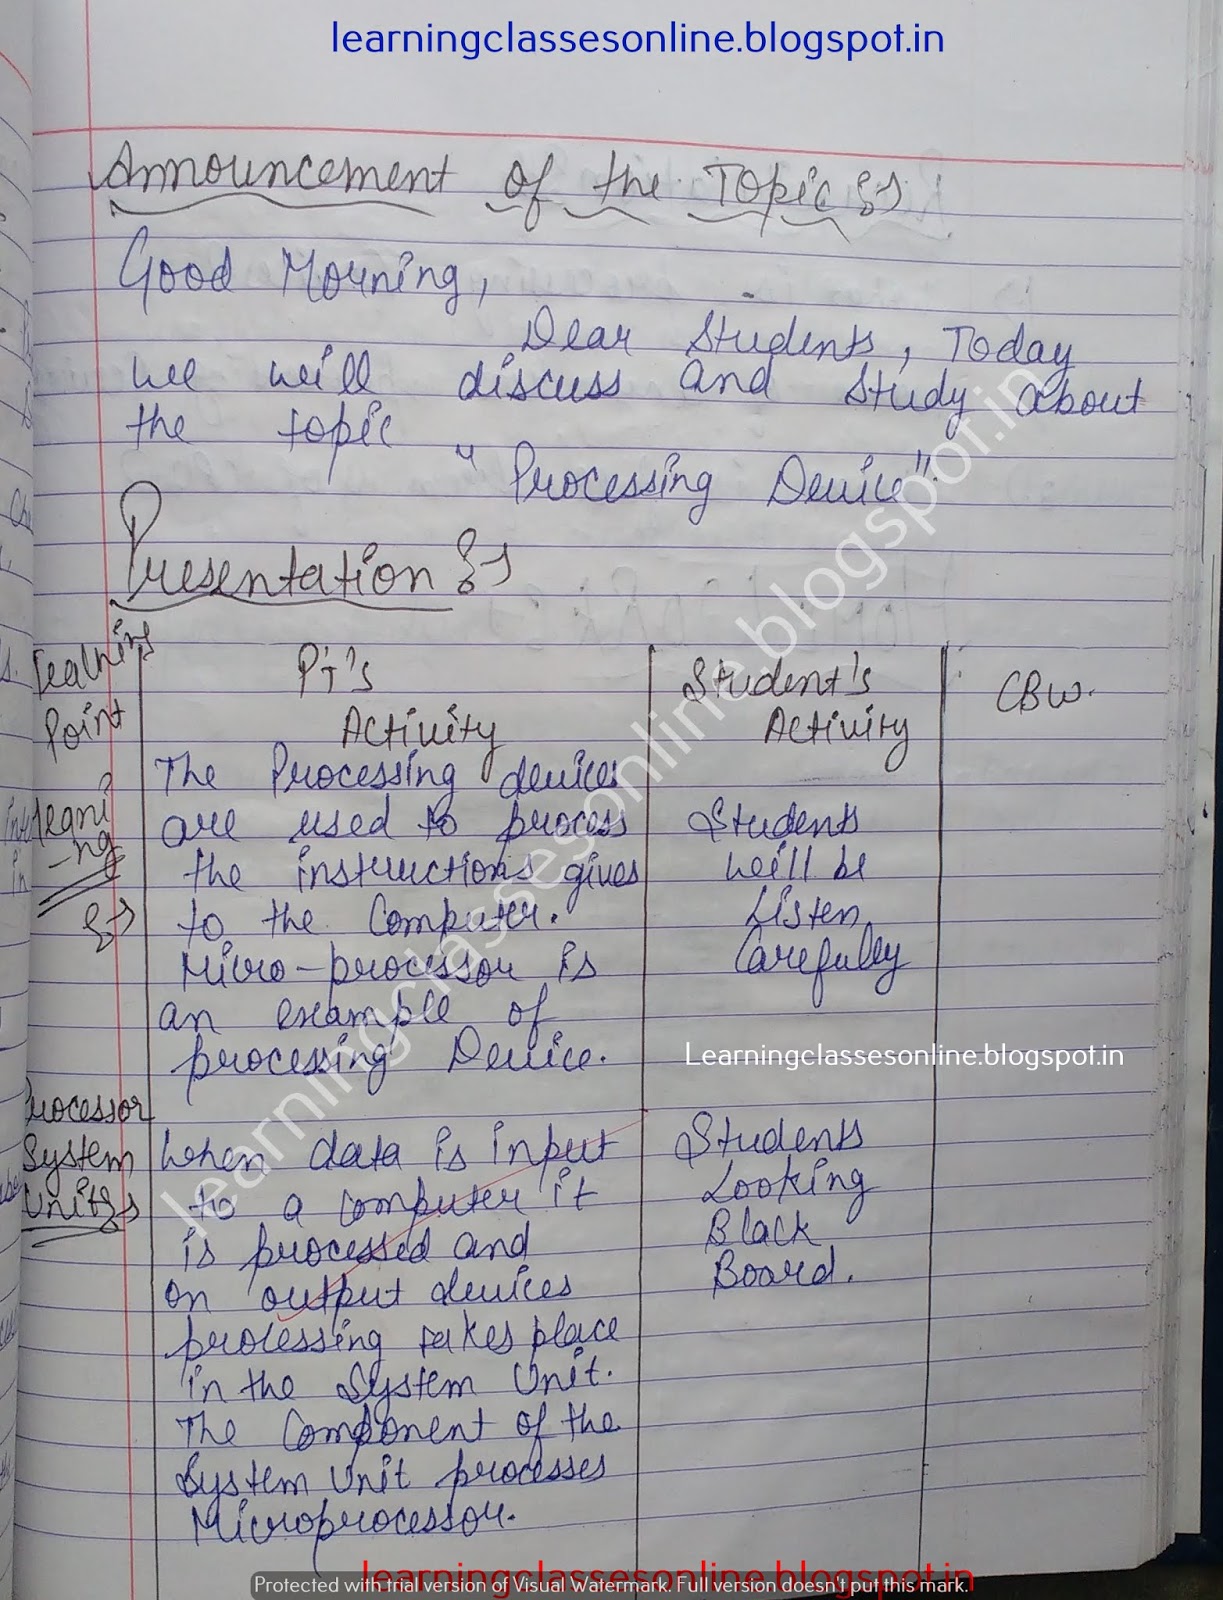 learningclassesonline.blogspot.in
Announcement of the Topic :-
Good Morning,
Dear Students, Today
we will discuss and study about
the topic
"Processing Device".
Presentation :-
Teaching
Point
PT's
Activity
Student's
Activity
CBW.
Meani
-ng
:-
The Processing devices
are used to process
the instructions gives
to the Computer.
Micro-processor is
an example of
processing Device.
Students
will be
Listen
Carefully
Learningclassesonline.blogspot.in
Processor
System
Unit:-
When data is input
to a computer it
is processed and
on output devices
processing takes place
in the System Unit.
The Component of the
System Unit processes
Microprocessor.
Students
Looking
Black
Board.
learningclassesonline.blogspot.in
learningclassesonline.blogspot.in
Protected with trial version of Visual Watermark. Full version doesn't put this mark.